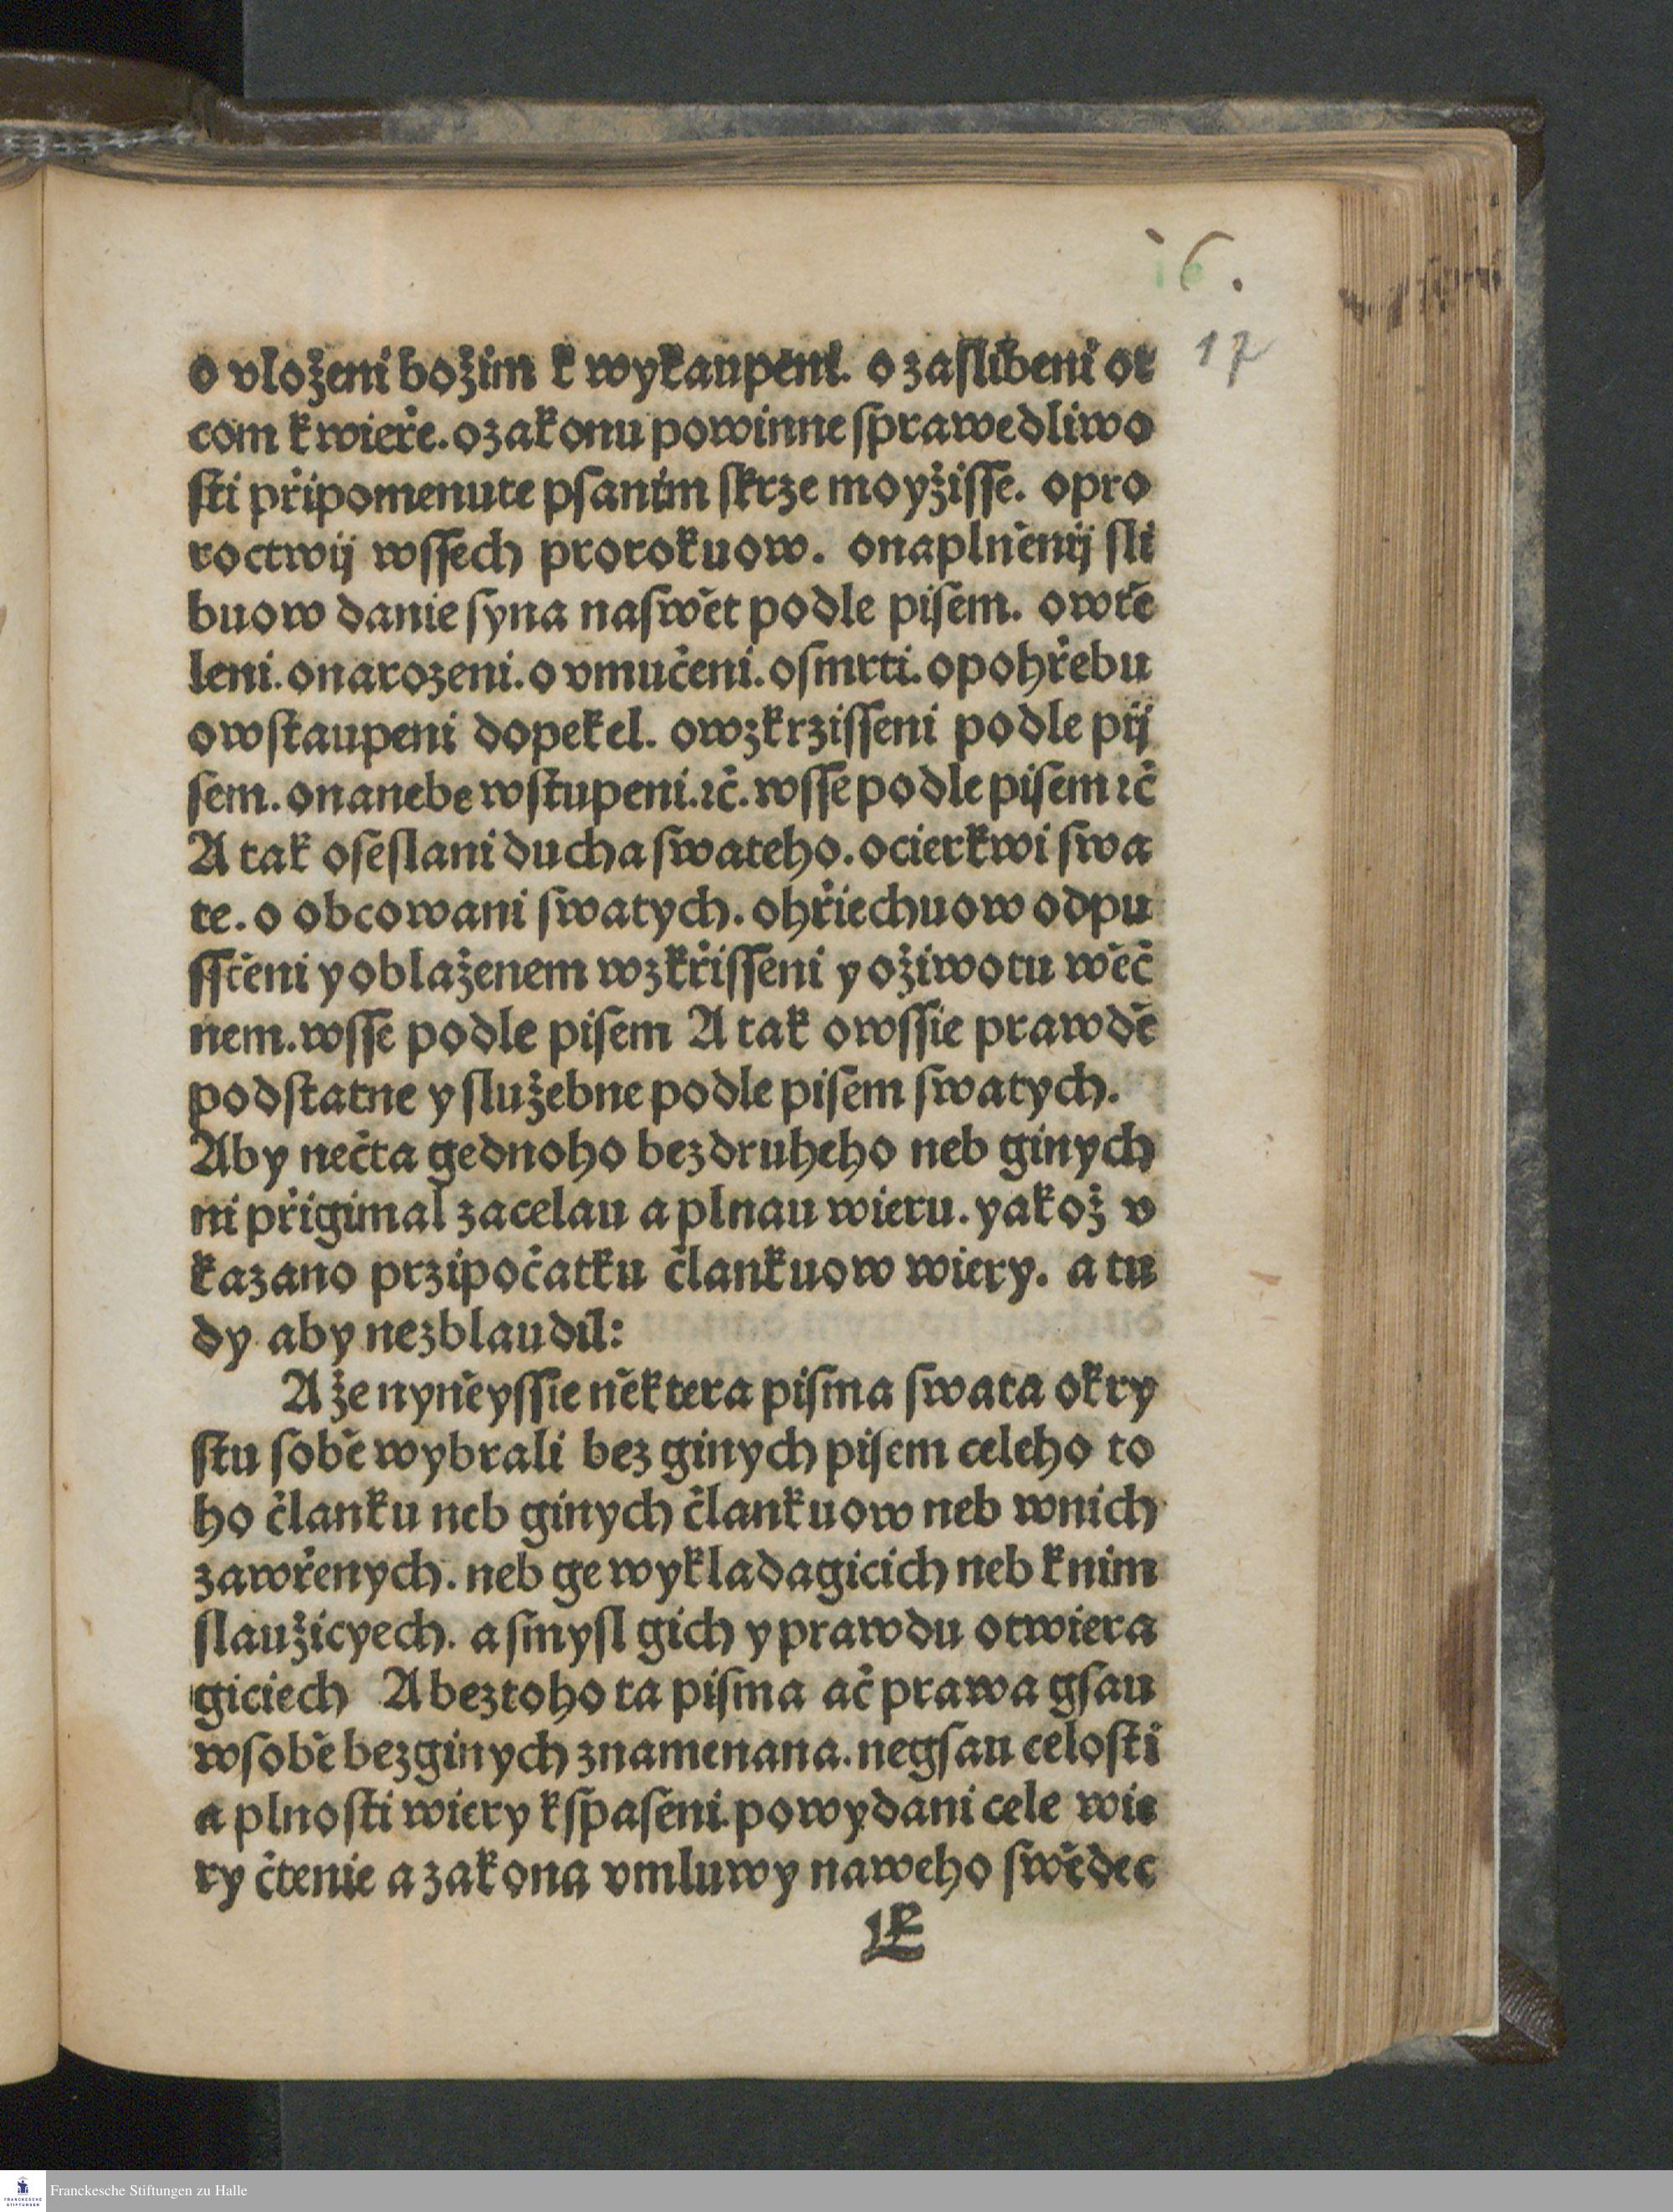 16.
17
o vloženi božim k wykaupeni. o zaſlibeni ot
com k wieře. o zakonu powinne ſprawedliwo
ſti připomenute pſanim ſkrze moyžiſſe. opro
roctwij wſſech prorokuow. onaplněnij ſli
buow danie ſyna naſwět podle piſem. owtě
leni. onarozeni. o vmučeni. oſmrti. opohřebu
owſtaupeni dopekel. owzkrziſſeni podle pij
ſem. onanebe wſtupeni. ꝛč. wſſe podle piſem ꝛč
A tak oſeſlani ducha ſwateho. ocierkwi ſwa
te. o obcowani ſwatych. ohřiechuow odpu
ſſtěni y oblaženem wzkřiſſeni y oživotu wěč
nem. wſſe podle piſem A tak owſſie prawdě
podſtatne y ſlužebne podle piſem ſwatych.
Aby nečta gednoho bez druheho neb ginych
ni přigimal zacelau a plnau wieru. yakož v
kazano przipočatku člankuow wiery. a tu
dy aby nezblaudil:
A že nyněyſſie některa piſma ſwata okry
ſtu ſobě wybrali bez ginych piſem celeho to
ho članku neb ginych člankuow neb wnich
zawřenych. neb ge wykladagicich neb knim
ſlaužicyech. a ſmyſl gich y prawdu otwiera
giciech A beztoho ta piſma ač prawa gſau
wſobě bezginych znamenana. negſau celoſti
a plnoſti wiery kſpaſeni. powydani cele wie
ry čtenie a zakona vmluwy naweho ſwědec
Franckesche Stiftungen zu Halle